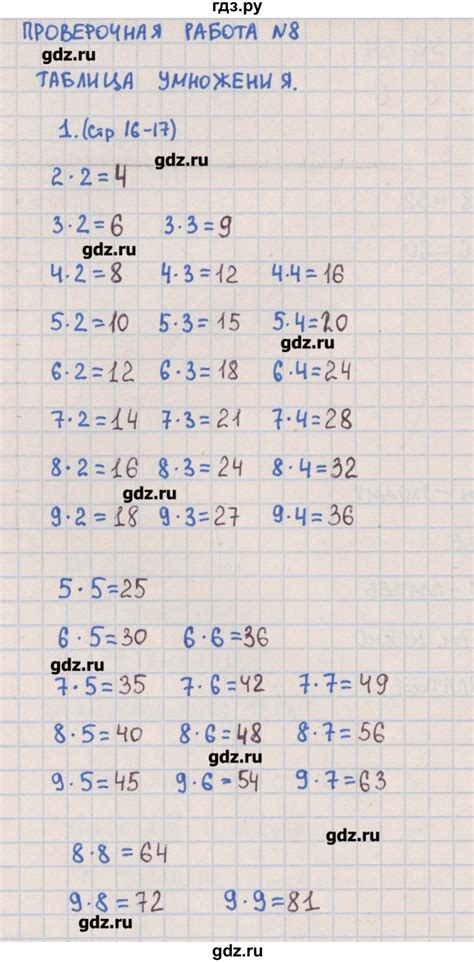 гдз.ру
ПРОВЕРОЧНАЯ РАБОТА N8
gdz.ru
ТАБЛИЦА УМНОЖЕНИЯ.
1. (стр 16-17)
gdz.ru
2·2=4
3·2=6 3·3=9
gdz.ru
4·2=8 4·3=12 4·4=16
5·2=10 5·3=15 5·4=20
gdz.ru
6·2=12 6·3=18 6·4=24
7·2=14 7·3=21 7·4=28
8·2=16 8·3=24 8·4=32
gdz.ru
9·2=18 9·3=27 9·4=36
5·5=25
6·5=30 6·6=36
gdz.ru
7·5=35 7·6=42 7·7=49
8·5=40 8·6=48 8·7=56
gdz.ru
9·5=45 9·6=54 9·7=63
gdz.ru
8·8=64
9·8=72 9·9=81
gdz.ru
gdz.ru